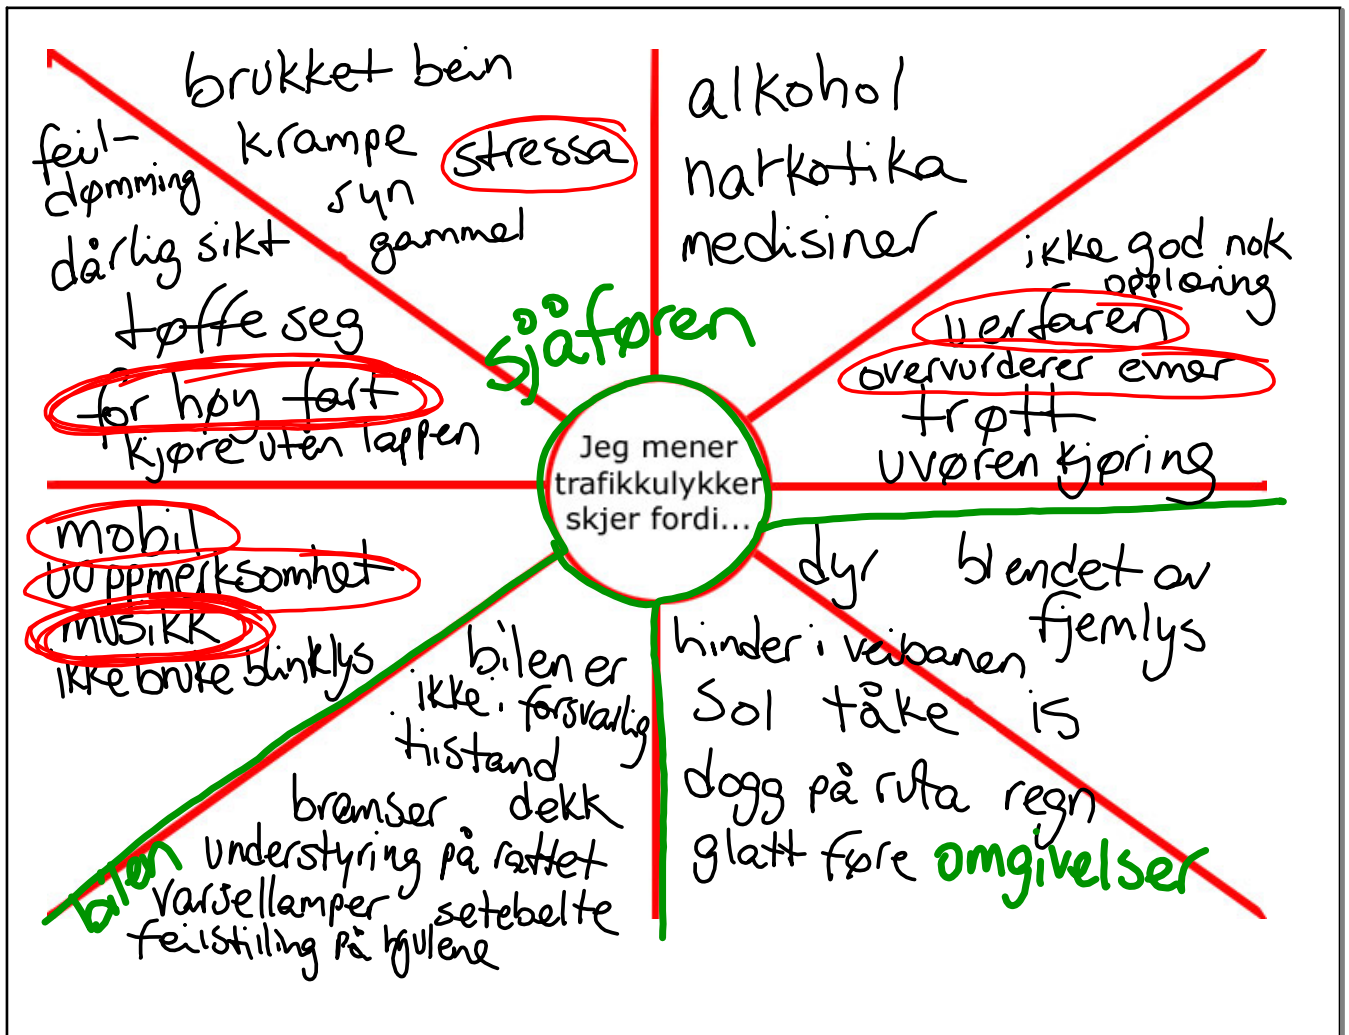 brukket bein
krampe
stressa
syn
gammel
alkohol
narkotika
medisiner
feil-
dømming
dårlig sikt
tøffe seg
for høy fart
kjøre uten lappen
sjåføren
ikke god nok
opplæring
uerfaren
overvurderer evner
trøtt
uvøren kjøring
Jeg mener
trafikkulykker
skjer fordi...
mobil
uoppmerksomhet
musikk
ikke bruke blinklys
bilen er
ikke i forsvarlig
tilstand
bremser dekk
understyring på rattet
varsellamper setebelte
feilstilling på hjulene
bilen
dyr blendet av
fjernlys
hinder i veibanen
Sol tåke is
dogg på ruta regn
glatt føre omgivelser